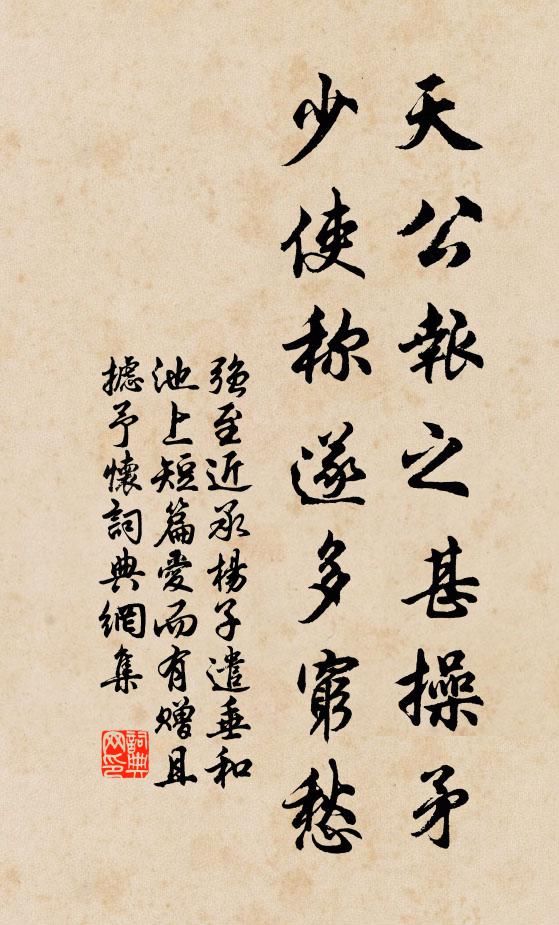 天公報之甚操矛
少使称遂多窮愁
強至近承楊子遣垂和
池上短篇愛而有贈且
攄予懷詞典網集
詞典
网印